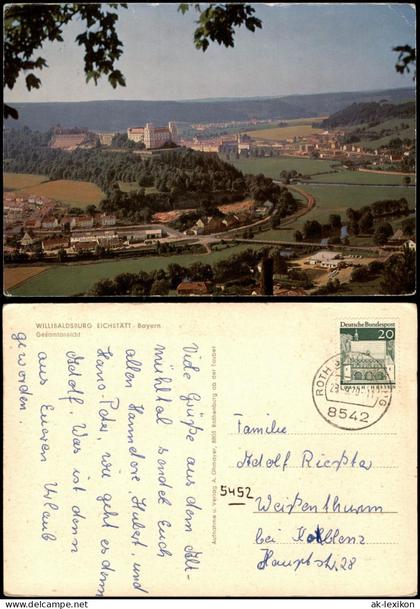 WILLIBALDSBURG EICHSTÄTT - Bayern
Gesamtansicht
Viele Grüße aus dem Alt-
mühltal sendet Euch
allen Hannelore, Hubert, und
Hans-Peter, wie geht es denn
Adolf. Was ist denn
aus Eurem Urlaub
geworden.
Aufnahme u. Verlag A. Ohmayer, 8803 Rothenburg ob der Tauber
Deutsche Bundespost
20
ROTH
8542
Familie
Adolf Riepta
5452
Weißenthurm
bei Koblenz
Hauptstr. 28
www.ak-lexikon.de
© ak-lexikon